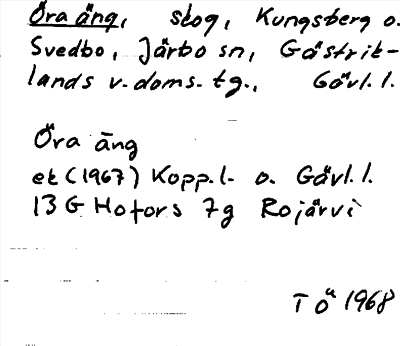 Öra äng, skog, Kungsberg o.
Svedbo, Järbo sn, Gästrik-
lands v. doms. tg., Gävl. l.
Öra äng
ek (1967) Kopp. l. o. Gävl. l.
13 G Hofors 7g Rojärvi
T Ö 1968